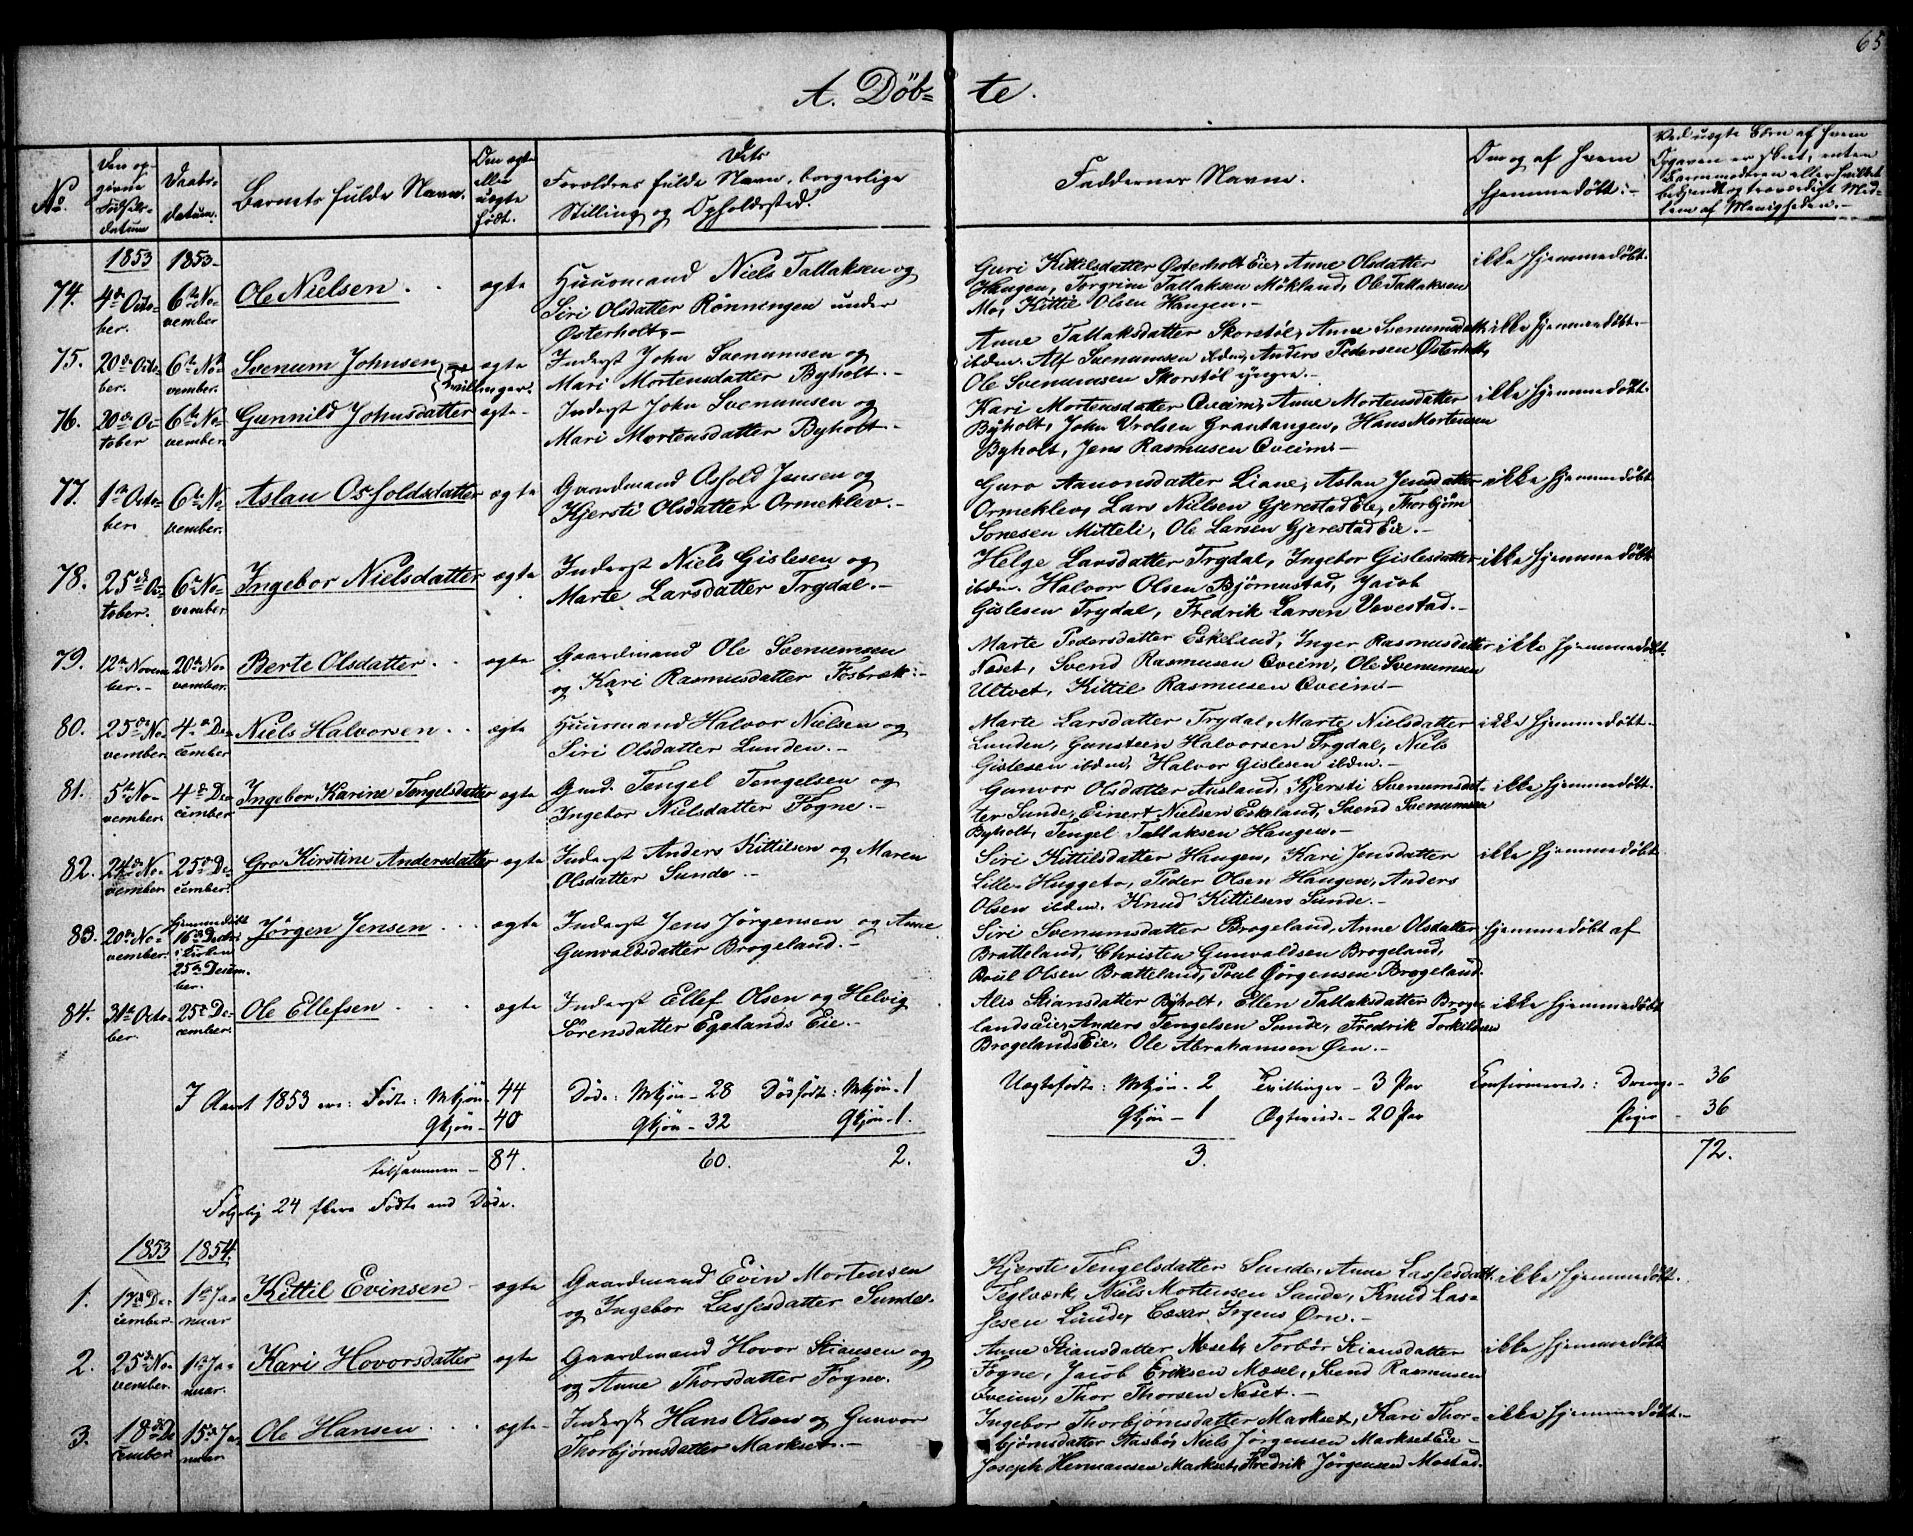 65
A. Döb- te.
No.
Den op-
givne
Födsels-
datum
Daabs-
datum.
Barnets fulde Navn.
Om ægte
eller
uægte
födt.
Dets
Forældres fulde Navn, borgerlige
Stilling og Opholdssted.
Faddernes Navne.
Om og af hvem
hjemmedöbt.
Ved uægte Börn af hvem
Opgaven er skeet, enten
Barnemoderen eller hvilket
bekjendt og troværdigt Med-
lem af Menigheden.
1853 1853
74. 4de Octo-
ber. 6te No-
vember Ole Nielsen ægte Huusmand Niels Tallaksen og
Siri Olsdatter Rönningen under
Österholt.
Guri Kittilsdatter Österholt Eie, Anne Olsdatter
Haugen, Torgrim Tallaksen Mökland, Ole Tallaksen
Mo, Kittil Olsen Haugen.
ikke hjemmedöbt.
75. 20de Octo-
ber. 6te No-
vember. Svenum Johnsen Tvillinger. ægte Inderst John Svenumsen og
Mari Mortensdatter Byholt.
Anne Tallaksdatter Skorstöl, Anne Svenumsdatt.
ibdm. Alf Svenumsen ibdm, Anders Pedersen Österholt,
Ole Svenumsen Skorstöl yngre.
ikke hjemmedöbt.
76. 20de Oc-
tober 6te No-
vember. Gunnild Johnsdatter ægte Inderst John Svenumsen og
Mari Mortensdatter Byholt
Kari Mortensdatter Qveim, Anne Mortensdatter
Byholt, John Vrolsen Grantangen, Hans Mortensen
Byholt, Jens Rasmusen Qveim.
ikke hjemmedöbt.
77. 1ste Octo-
ber. 6te No-
vember. Aslau Osfoldsdatter ægte Gaardmand Osfold Jensen og
Kjersti Olsdatter Ormeklev.
Guro Aanonsdatter Liane, Aslau Jensdatter
Ormeklev, Lars Nielsen Gjerestad Eie, Thorbjörn
Sonesen Mitteli, Ole Larsen Gjerestad Eie.
ikke hjemmedöbt
78. 25de Oc-
tober. 6te No-
vember Ingebor Nielsdatter ægte Inderst Niels Gislesen og
Marte Larsdatter Trydal.
Helge Larsdatter Trydal, Ingebor Gislesdatter
ibdm. Halvor Olsen Björnustad, Jacob
Gislesen Trydal, Fredrik Larsen Vevestad.
ikke hjemmedöbt
79. 12te Novem-
ber. 20de No-
vember. Berte Olsdatter ægte Gaardmand Ole Svenumsen
og Kari Rasmusdatter Fosbræk.
Marte Pedersdatter Eskeland, Inger Rasmusdatter
Næset, Svend Rasmusen Qveim, Ole Svenumsen
Ultvet, Kittil Rasmusen Qveim.
ikke hjemmedöbt.
80. 25de No-
vember. 4de De-
cember Niels Halvorsen ægte Huusmand Halvor Nielsen og
Siri Olsdatter Lunden.
Marte Larsdatter Trydal, Marte Nielsdatter
Lunden, Gunsteen Halvorsen Trydal, Niels
Gislesen ibdm, Halvor Gislesen ibdm.
ikke hjemmedöbt.
81. 5te No-
vember. 4de De-
cember Ingebor Karine Tengelsdatter ægte Gmd. Tengel Tengelsen og
Ingebor Nielsdatter Fogne.
Gunvor Olsdatter Ausland, Kjersti Svenumsdat-
ter Sunde, Einert Nielsen Eskeland, Svend Svenumsen
Byholt, Tengel Tallaksen Haugen.
ikke hjemmedöbt.
82. 24de No-
vember. 25de De-
cember. Gro Kirstine Andersdatter ægte Inderst Anders Kittilsen og Maren
Olsdatter Sunde.
Siri Kittilsdatter Haugen, Kari Jensdatter
Lille-Huggeto, Peder Olsen Haugen, Anders
Olsen ibdm. Knud Kittilsen Sunde.
ikke hjemmedöbt
83. 20de No-
vember. hjemmedöbt
16de Decbr.
i Kirken
25de Decem-
ber. Jörgen Jensen ægte Inderst Jens Jörgensen og Anne
Gunvaldsdatter Brogeland.
Siri Svenumsdatter Brogeland, Anne Olsdatter
Bratteland, Christen Gunvaldsen Brogeland,
Poul Olsen Bratteland, Poul Jörgensen Brogeland.
hjemmedöbt af
84. 31te Octo-
ber. 25de De-
cember. Ole Ellefsen ægte Inderst Ellef Olsen og Helvig
Sörensdatter Egelands Eie.
Alis Stiansdatter Byholt, Ellen Tallaksdatter Broge-
lands Eie, Anders Tengelsen Sunde, Fredrik Torkildsen
Brogelands Eie, Ole Abrahamsen Öen.
ikke hjemmedöbt
I Aaret 1853 ere: Födte: Mkjön - 44 Döde: Mkjön - 28 Dödfödte: Mkjön - 1 Uægtefödte: Mkjön - 2 Tvillinger - 3 Par Confirmerede: Drenge - 36
Qkjön - 40 Qkjön - 32 Qkjön - 1. Qkjön - 1 Ægteviede - 20 Par Piger - 36
tilsammen - 84. 60. 2. 3. 72.
Fölgelig 24 flere Födte end Döde.
1853 1854.
1. 17de De-
cember. 1ste Ja-
nuar Kittil Evinsen ægte Gaardmand Evin Mortensen
og Ingebor Lassesdatter Sunde.
Kjersti Tengelsdatter Sunde, Anne Lassesdatt.
Teglværk, Niels Mortensen Sunde, Knud Las-
sesen Lunde, Cæsar Irgens Örn.
ikke hjemmedöbt.
2. 25de No-
vember. 1ste Ja-
nuar. Kari Hovorsdatter ægte Gaardmand Hovor Stiansen og
og Anne Thorsdatter Fogne.
Anne Stiansdatter Mæsel, Torbör Stiansdatter
Fogne, Jacob Eriksen Mæsel, Svend Rasmusen
Qveim, Thor Thorsen Næset.
ikke hjemmedöbt
3. 18de De-
cember 15de Ja-
nuar Ole Hansen ægte Inderst Hans Olsen og Gunvor
Thorbjörnsdatter Markset.
Ingebor Thorbjörnsdatter Markset, Kari Thor-
björnsdatter Aasbö, Niels Jörgensen Markset Eie
Joseph Hermansen Markset, Fredrik Jörgensen Mostad.
ikke hjemmedöbt.